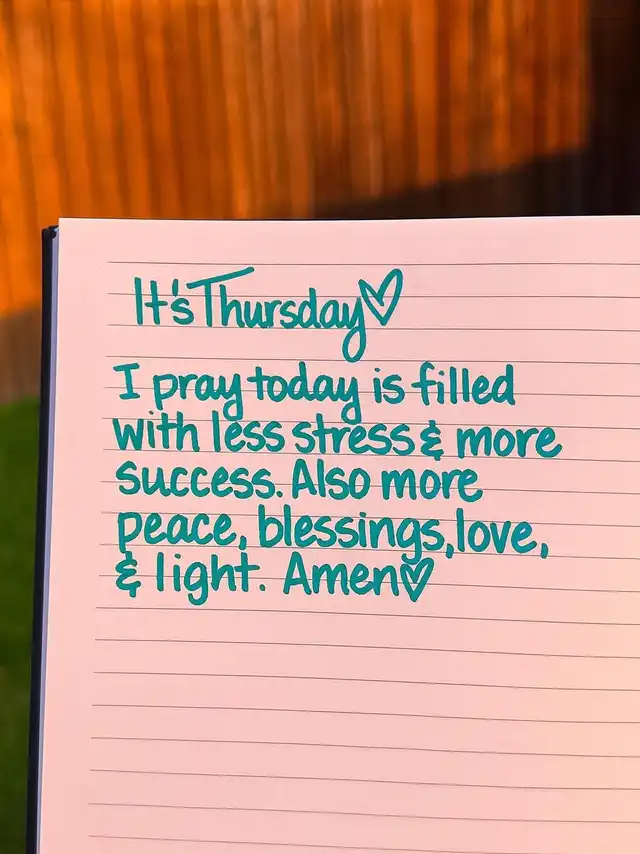 It's Thursday♡
I pray today is filled
with less stress & more
success. Also more
peace, blessings, love,
& light. Amen♡